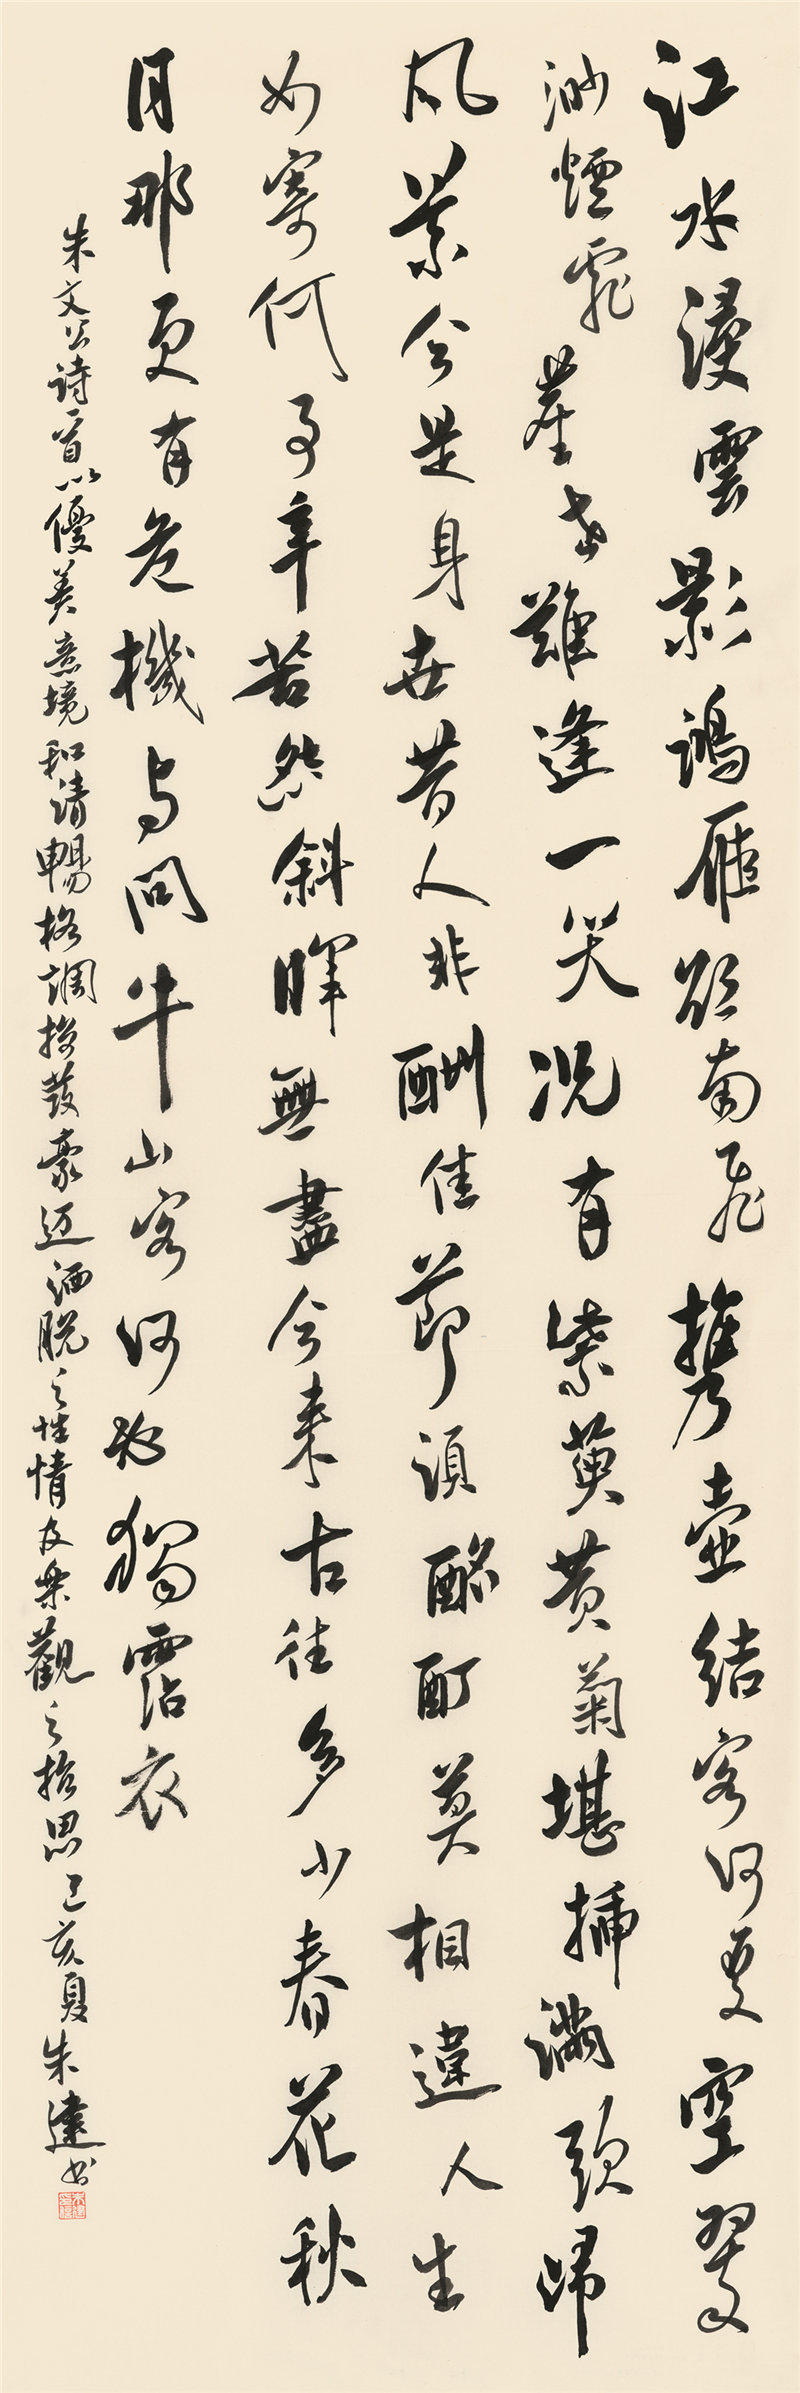 江水浸雲影鴻雁欲南飛攜壺結客何處空翠
渺煙霏塵世難逢一笑况有紫萸黄菊堪插滿頭歸
風景今是身世昔人非酬佳節須酩酊莫相違人生
如寄何事辛苦怨斜暉無盡今來古往多少春花秋
月那更有危機与問牛山客何必獨霑衣
朱文公诗一首以優美意境和清暢格調抒發豪迈洒脱之性情及樂觀之哲思己亥夏朱書